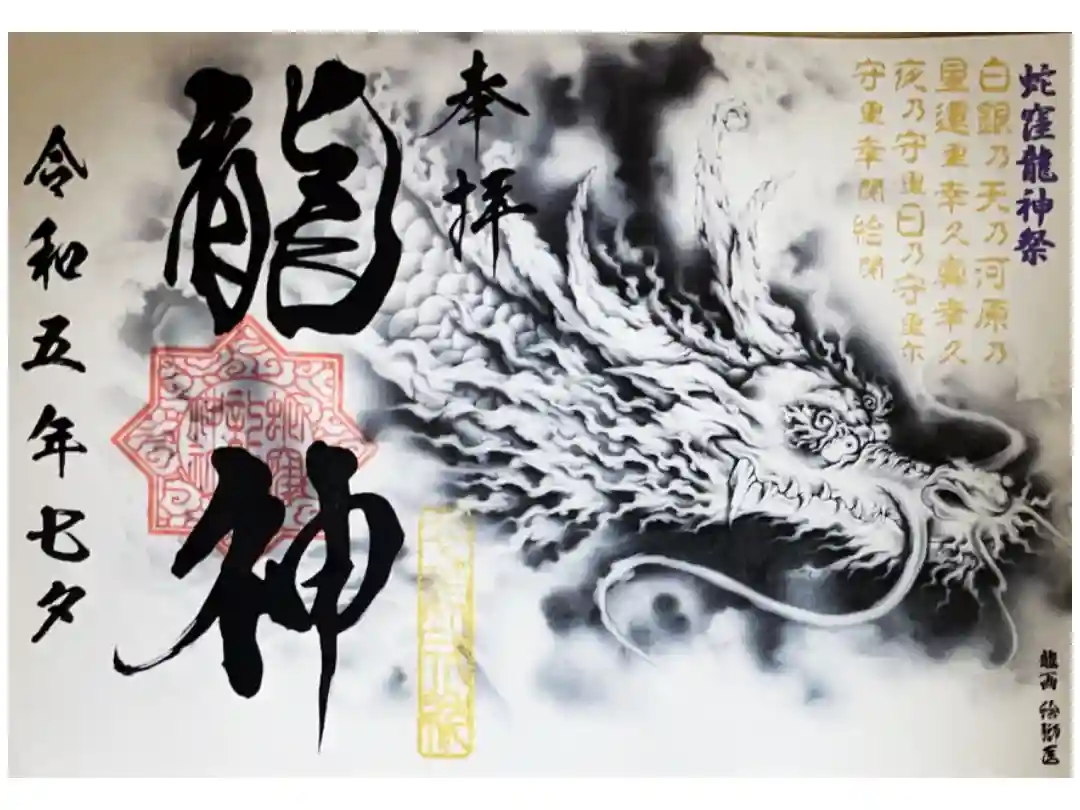 蛇窪龍神祭
白銀乃天乃河原乃
幸久眞幸久
夜乃守里日乃守里尓
守里幸閇給閇
奉拝
龍神
令和五年七夕
龍画